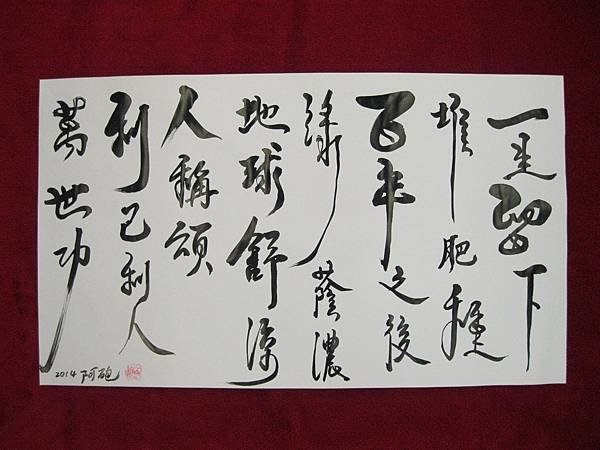 一走留下
堆肥種
百年之後
綠蔭濃
地球舒涼
人稱頌
利己利人
萬世功
2014 阿砲